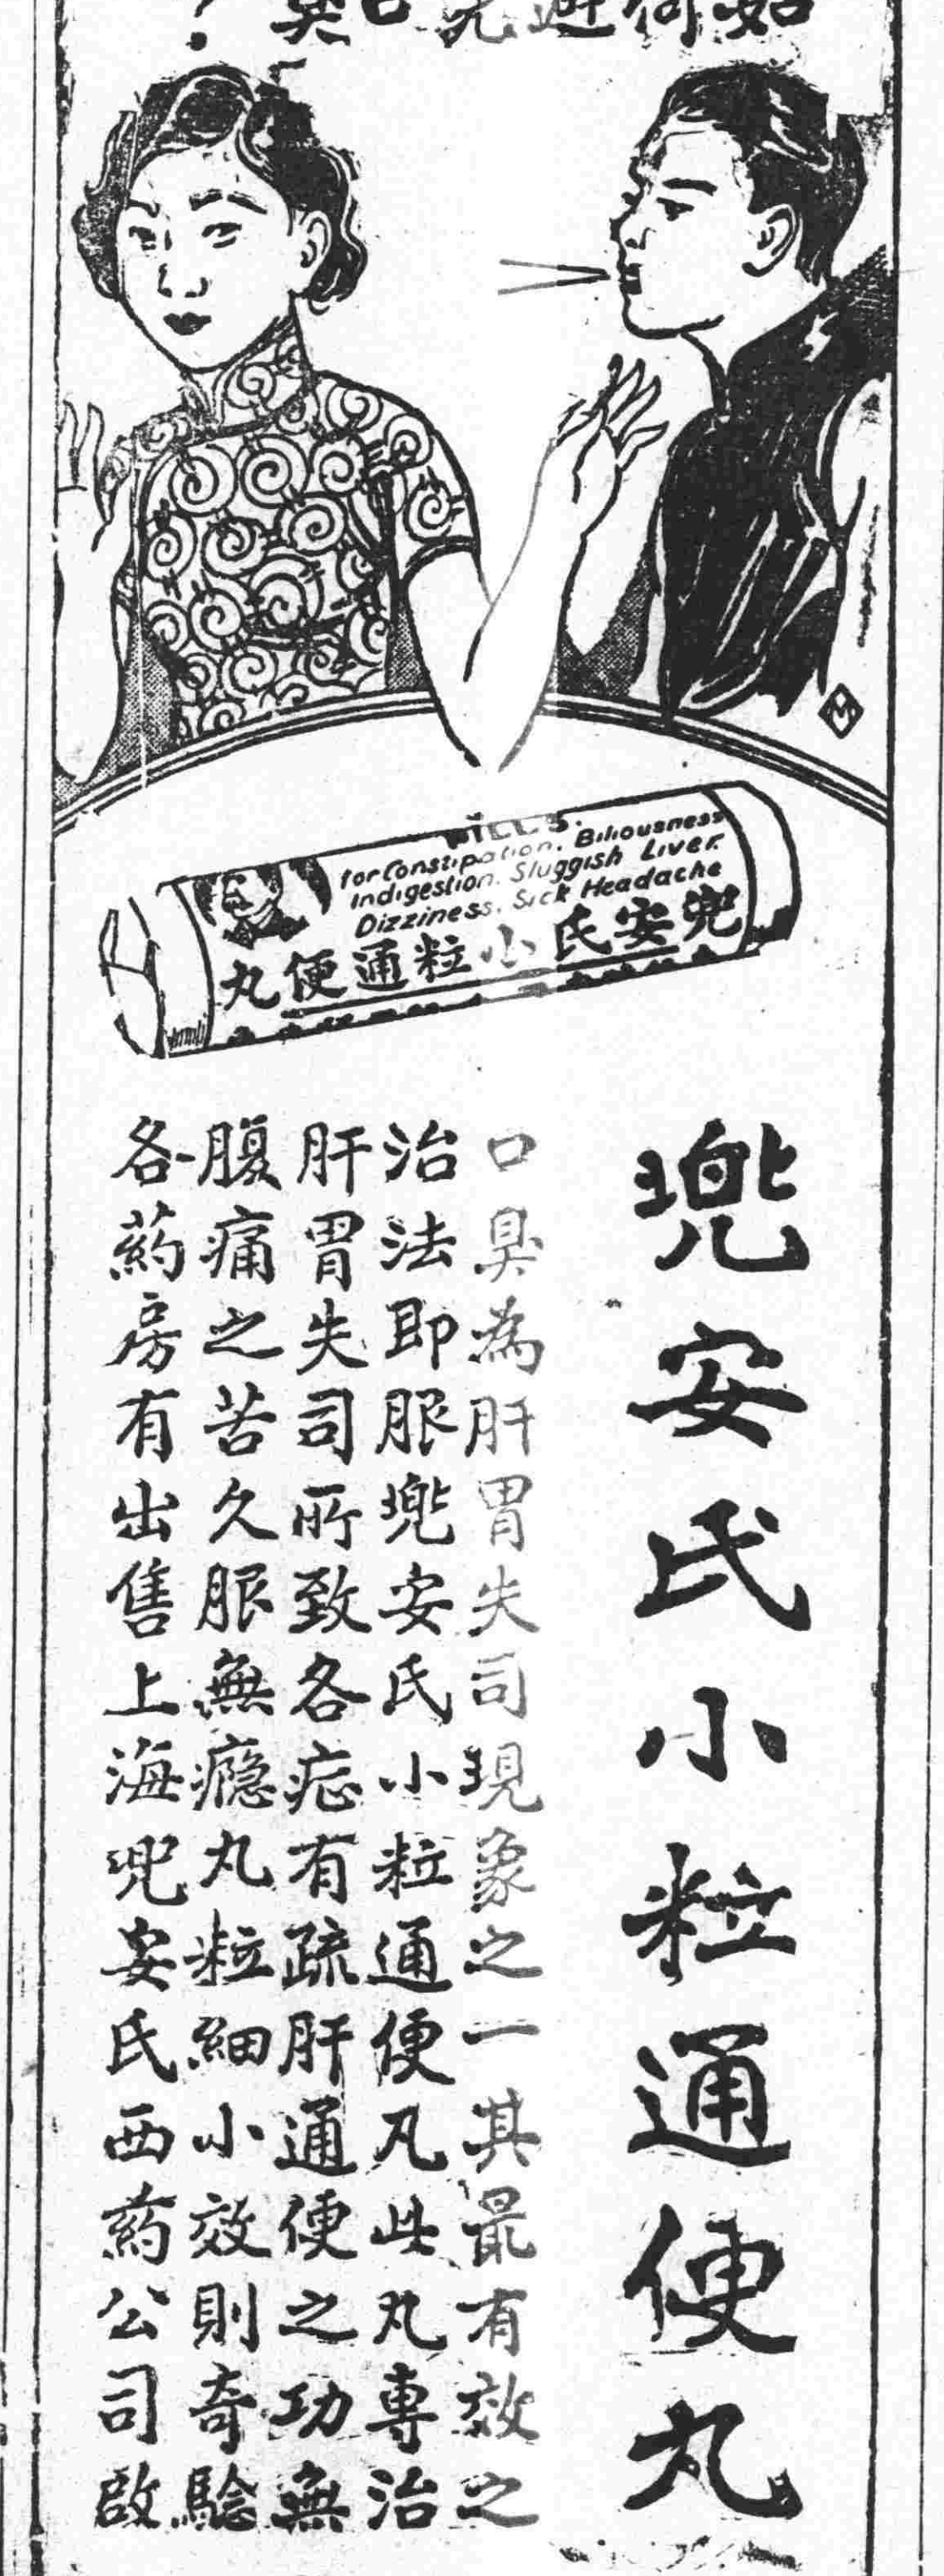 如何避免口臭?
PILLS.
for Constipation, Biliousness
Indigestion, Sluggish Liver.
Dizziness, Sick Headache
兜安氏小粒通便丸
M
兜安氏小粒通便丸
口臭為肝胃失司現象之一其最有效之
治法即服兜安氏小粒通便凡此丸專治
肝胃失司所致各症有疏肝通便之功無
腹痛之苦久服無癮丸粒細小效則奇驗
各葯房有出售上海兜安氏西葯公司啟